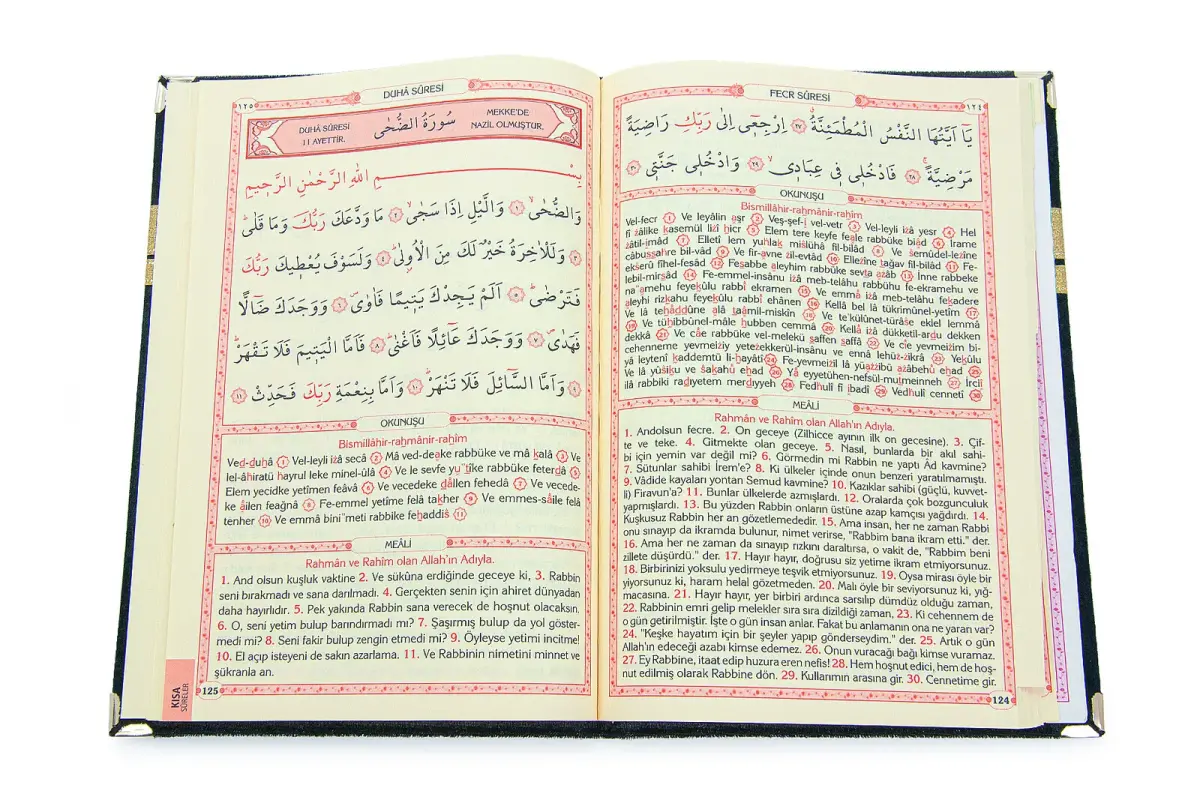 FECR SÛRESİ
١٢٤
يَا اَيَّتُهَا النَّفْسُ الْمُطْمَئِنَّةُ ﴿٢٧﴾ اِرْجِعٖٓي اِلٰى رَبِّكِ رَاضِيَةً
مَرْضِيَّةً ﴿٢٨﴾ فَادْخُلٖي فٖي عِبَادٖي ﴿٢٩﴾ وَادْخُلٖي جَنَّتٖي ﴿٣٠﴾
OKUNUŞU
Bismillâhir-rahmânir-rahîm
Vel-fecr 1 Ve leyâlin aşr 2 Veş-şef-i vel-vetr 3 Vel-leyli izâ yesr 4 Hel
fî zâlike kasemül lizî hicr 5 Elem tere keyfe feale rabbüke biâd 6 İrame
zâtil-ımâd 7 Elletî lem yuhlak mislühâ fil-bilâd 8 Ve semûdel-lezîne
câbussahre bil-vâd 9 Ve fir-avne zil-evtâd 10 Ellezîne tağav fil-bilâd 11 Fe-
ekserû fîhel-fesâd 12 Fesabbe aleyhim rabbüke sevta azâb 13 İnne rabbeke
lebil-mirsâd 14 Fe-emmel-insânu izâ meb-telâhu rabbühu fe-ekramehu ve
na''amehu feyekûlu rabbî ekramen 15 Ve emmâ izâ meb-telâhu fekadere
aleyhi rizkahu feyekûlu rabbî ehânen 16 Kellâ bel lâ tükrimûnel-yetîm 17
Ve lâ tehâddûne alâ taâmil-miskîn 18 Ve te'külûnet-türâse eklel lemmâ
19 Ve tühibbûnel-mâle hubben cemmâ 20 Kellâ izâ dükketil-ardu dekken
dekkâ 21 Ve câe rabbüke vel-melekü saffen saffâ 22 Ve cîe yevmeizim bi-
cehenneme yevmeiziy yetezekkerül-insânu ve ennâ lehüz-zikrâ 23 Yekûlu
yâ leytenî kaddemtü li-hayâtî 24 Fe-yevmeizil lâ yüazzibü azâbehû ehad 25
Ve lâ yûsiku ve sakahû ehad 26 Yâ eyyetühen-nefsül-mutmeinneh 27 İrciî
ilâ rabbiki radıyetem merdıyyeh 28 Fedhulî fî ibadî 29 Vedhulî cennetî 30
MEÂLİ
Rahmân ve Rahîm olan Allah'ın Adıyla.
1. Andolsun fecre. 2. On geceye (Zilhicce ayının ilk on gecesine). 3. Çif-
te ve teke. 4. Gitmekte olan geceye. 5. Nasıl, bunlarda bir akıl sahi-
bi için yemin var değil mi? 6. Görmedin mi Rabbin ne yaptı Âd kavmine?
7. Sütunlar sahibi İrem'e? 8. Ki ülkeler içinde onun benzeri yaratılmamıştı.
9. Vâdide kayaları yontan Semud kavmine? 10. Kazıklar sahibi (güçlü, kuvvet-
li) Firavun'a? 11. Bunlar ülkelerde azmışlardı. 12. Oralarda çok bozgunculuk
yapmışlardı. 13. Bu yüzden Rabbin onların üstüne azap kamçısı yağdırdı. 14.
Kuşkusuz Rabbin her an gözetlemededir. 15. Ama insan, her ne zaman Rabbi
onu sınayıp da ikramda bulunur, nimet verirse, "Rabbim bana ikram etti." der.
16. Ama her ne zaman da sınayıp rızkını daraltırsa, o vakit de, "Rabbim beni
zillete düşürdü." der. 17. Hayır hayır, doğrusu siz yetime ikram etmiyorsunuz.
18. Birbirinizi yoksulu yedirmeye teşvik etmiyorsunuz. 19. Oysa mirası öyle bir
yiyorsunuz ki, haram helal gözetmeden. 20. Malı öyle bir seviyorsunuz ki, yığ-
macasına. 21. Hayır hayır, yer birbiri ardınca sarsılıp dümdüz olduğu zaman,
22. Rabbinin emri gelip melekler sıra sıra dizildiği zaman, 23. Ki cehennem de
o gün getirilmiştir. İşte o gün insan anlar. Fakat bu anlamanın ona ne yararı var?
24. "Keşke hayatım için bir şeyler yapıp gönderseydim." der. 25. Artık o gün
Allah'ın edeceği azabı kimse edemez. 26. Onun vuracağı bağı kimse vuramaz.
27. Ey Rabbine, itaat edip huzura eren nefis! 28. Hem hoşnut edici, hem de hoş-
nut edilmiş olarak Rabbine dön. 29. Kullarımın arasına gir. 30. Cennetime gir.
124
DUHÂ SÛRESİ
١٢٥
DUHÂ SÛRESİ
11 AYETTİR.
سُورَةُ الضُّحٰى
MEKKE'DE
NAZİL OLMUŞTUR.
بِسْمِ اللّٰهِ الرَّحْمٰنِ الرَّحٖيمِ
وَالضُّحٰى ﴿١﴾ وَالَّيْلِ اِذَا سَجٰى ﴿٢﴾ مَا وَدَّعَكَ رَبُّكَ وَمَا قَلٰى
﴿٣﴾ وَلَلْاٰخِرَةُ خَيْرٌ لَكَ مِنَ الْاُولٰى ﴿٤﴾ وَلَسَوْفَ يُعْطٖيكَ رَبُّكَ
فَتَرْضٰى ﴿٥﴾ اَلَمْ يَجِدْكَ يَتٖيمًا فَاٰوٰى ﴿٦﴾ وَوَجَدَكَ ضَٓالًّا
فَهَدٰى ﴿٧﴾ وَوَجَدَكَ عَٓائِلًا فَاَغْنٰى ﴿٨﴾ فَاَمَّا الْيَتٖيمَ فَلَا تَقْهَرْ
﴿٩﴾ وَاَمَّا السَّٓائِلَ فَلَا تَنْهَرْ ﴿١٠﴾ وَاَمَّا بِنِعْمَةِ رَبِّكَ فَحَدِّثْ ﴿١١﴾
OKUNUŞU
Bismillâhir-rahmânir-rahîm
Ved-duhâ 1 Vel-leyli izâ secâ 2 Mâ ved-deake rabbüke ve mâ kalâ 3 Ve
lel-âhiratü hayrul leke minel-ûlâ 4 Ve le sevfe yu''tîke rabbüke feterdâ 5
Elem yecidke yetîmen feâvâ 6 Ve vecedeke dâllen fehedâ 7 Ve vecede-
ke âilen feağnâ 8 Fe-emmel yetîme felâ takher 9 Ve emmes-sâile felâ
tenher 10 Ve emmâ bini''meti rabbike fehaddiś 11
MEÂLİ
Rahmân ve Rahîm olan Allah'ın Adıyla.
1. And olsun kuşluk vaktine 2. Ve sükûna erdiğinde geceye ki, 3. Rabbin
seni bırakmadı ve sana darılmadı. 4. Gerçekten senin için ahiret dünyadan
daha hayırlıdır. 5. Pek yakında Rabbin sana verecek de hoşnut olacaksın.
6. O, seni yetim bulup barındırmadı mı? 7. Şaşırmış bulup da yol göster-
medi mi? 8. Seni fakir bulup zengin etmedi mi? 9. Öyleyse yetimi incitme!
10. El açıp isteyeni de sakın azarlama. 11. Ve Rabbinin nimetini minnet ve
şükranla an.
KISA
SÛRELER
125